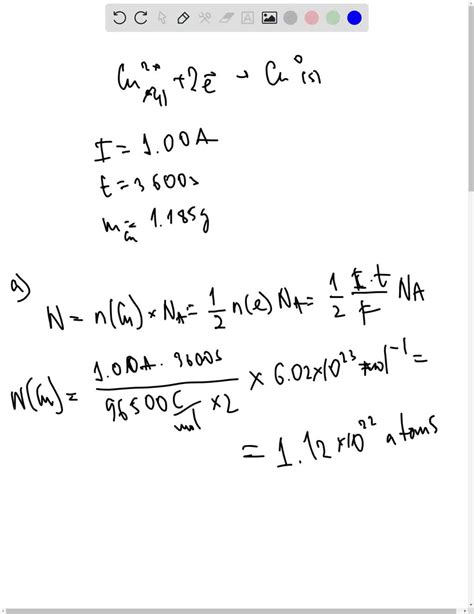 Cu²⁺(aq) + 2e⁻ → Cu⁰(s)
I = 1.00A
t = 3600s
m Cu = 1.185g
a)
N = n(Cu) × NA = 1/2 n(e) NA = 1/2 I·t/F NA
N(Cu) = 1.00A · 3600s / 96500 C/mol × 2 × 6.02×10²³ mol⁻¹ =
= 1.12×10²² atoms